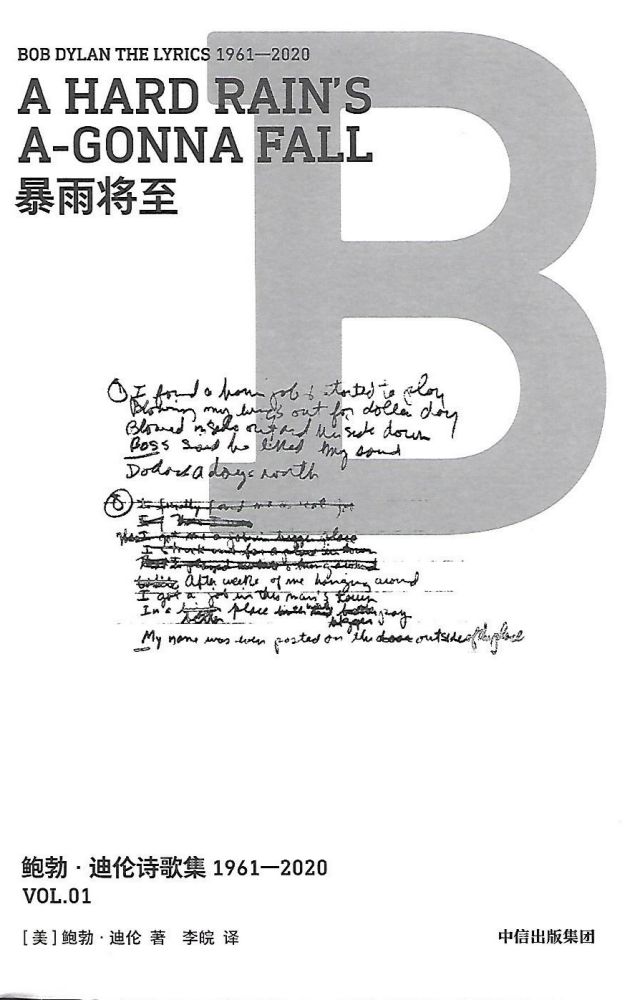 BOB DYLAN THE LYRICS 1961—2020
A HARD RAIN'S
A-GONNA FALL
暴雨将至
B
① I found a harm job & started to play
Blowing my lungs out for dollar day
Blowed inside out and upside down
Boss said he liked my sound
a days worth
⑥
After weeks of me hanging around
I got a job in this man's town
In a place pay
bigger
My name was even posted on the outside of the place
鲍勃·迪伦诗歌集 1961—2020
VOL.01
[美]鲍勃·迪伦 著 李皖 译
中信出版集团